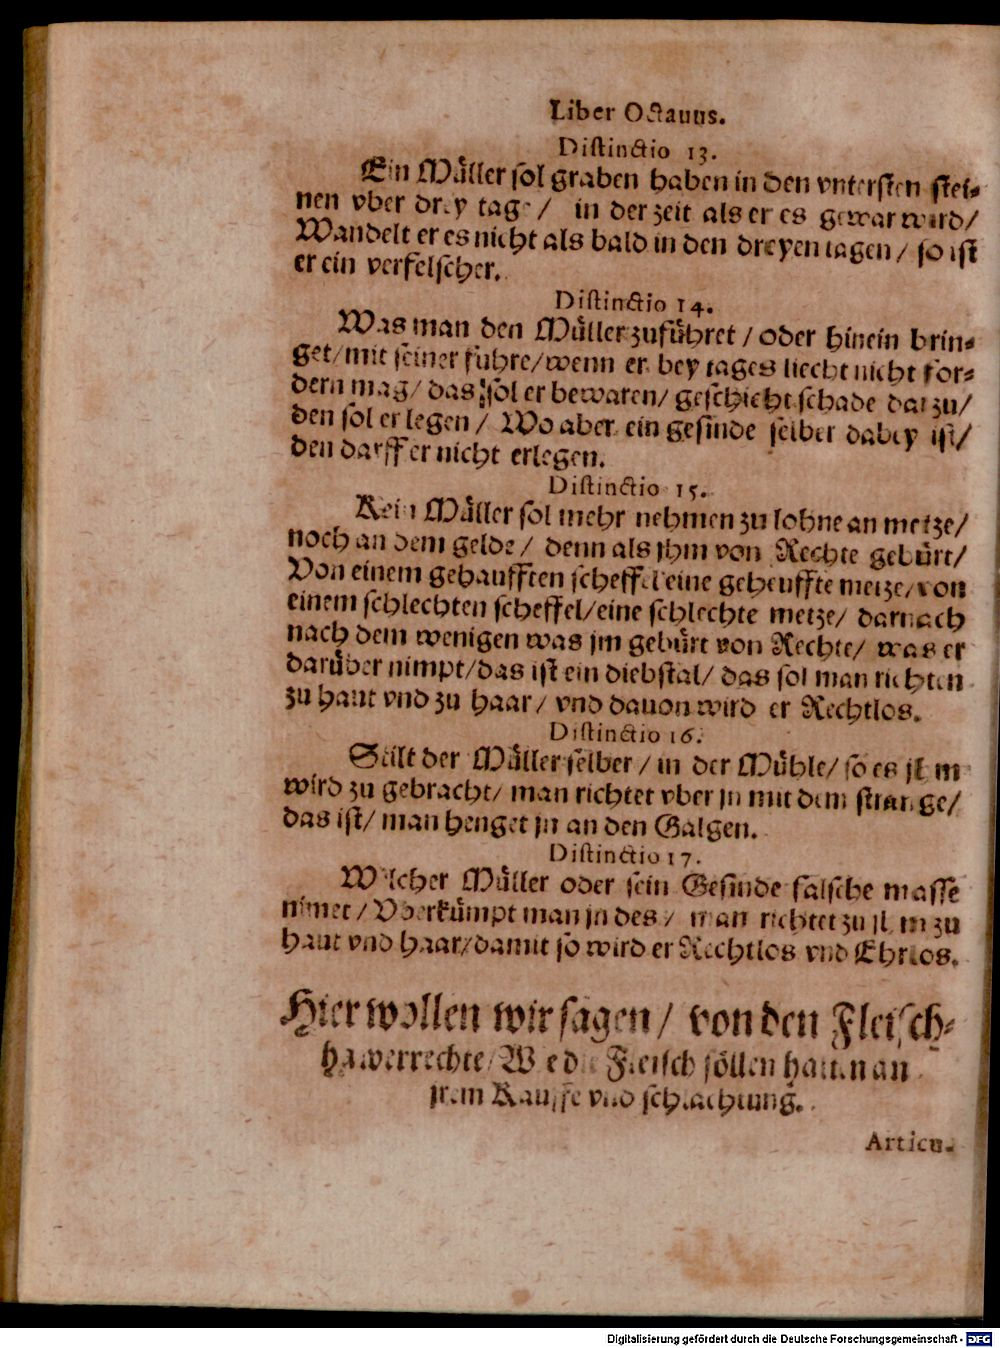 Liber Octauus.
Distinctio 13.
Ein Müller sol graben haben in den vntersten stei⸗
nen vber drey tage / in der zeit als er es gewar wird/
Wandelt er es nicht als bald in den dreyen tagen / so ist
er ein verfelscher.
Distinctio 14.
Was man den Müller zuführet / oder hinein brin⸗
get/mit seiner fuhre/wenn er bey tages liecht nicht for⸗
dern mag/ das sol er bewaren/ geschicht schade darzu/
den sol er legen / Wo aber ein gesinde selber dabey ist/
den darff er nicht erlegen.
Distinctio 15.
Kein Müller sol mehr nehmen zu lohne an metze/
noch an dem gelde / denn als jhm von Rechte gebürt/
Von einem gehaufften scheffel eine geheuffte metze/von
einem schlechten scheffel/eine schlechte metze/ darnach
nach dem wenigen was jm gebürt von Rechte/ was er
darüber nimpt/das ist ein diebstal/ das sol man richten
zu haut vnd zu haar / vnd dauon wird er Rechtlos.
Distinctio 16.
Stilt der Müller selber / in der Mühle/ so es jhm
wird zu gebracht/ man richtet vber jn mit dem strange/
das ist/ man henget jn an den Galgen.
Distinctio 17.
Welcher Müller oder sein Gesinde falsche masse
nimet / Vberkümpt man jn des / man richtet zu jhm zu
haut vnd haar/damit so wird er Rechtlos vnd Ehrlos.
Hier wollen wir sagen / von den Fleisch⸗
hawerrechte/ Wie die Fleisch söllen hauen an
jrem Kauffe vnd schlachtung.
Articu⸗
Digitalisierung gefördert durch die Deutsche Forschungsgemeinschaft - DFG